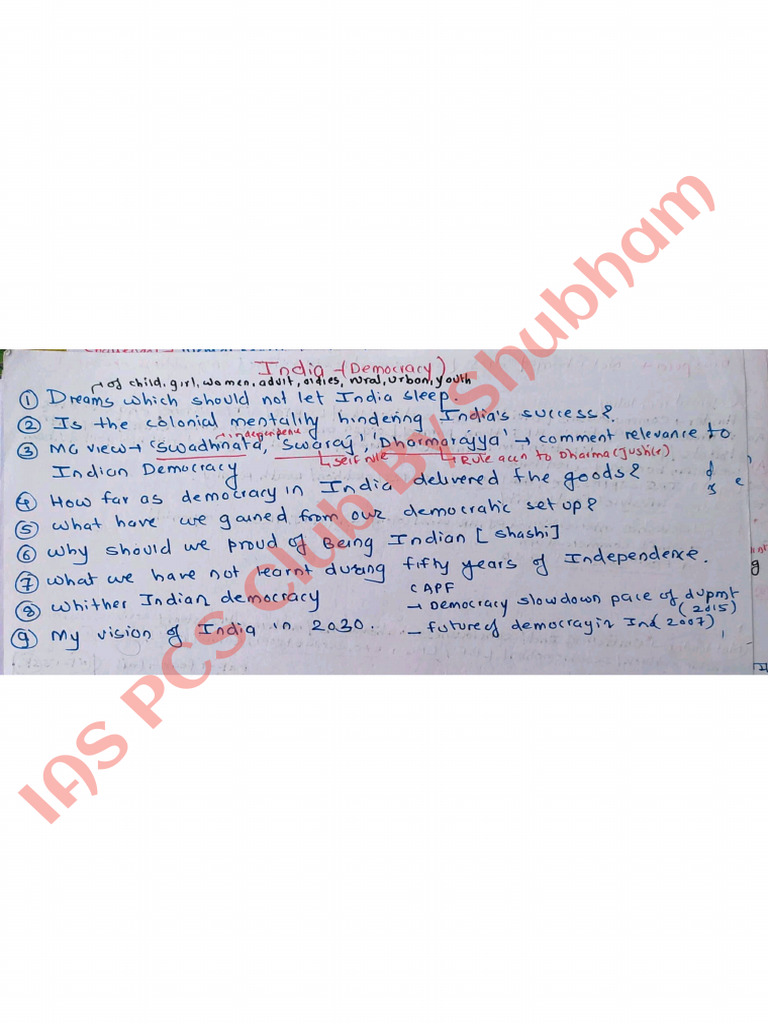 India - (Democracy)
of child, girl, women, adult, oldies, rural, urban, youth
① Dreams which should not let India sleep.
② Is the colonial mentality hindering India's success?
independence
③ MG view → 'Swadhinata', 'Swaraj', 'Dharmarajya' → comment relevance to
Self rule Rule accn to Dharma (Justice)
Indian Democracy
④ How far as democracy in India delivered the goods?
⑤ what have we gained from our democratic set up?
⑥ why should we proud of Being Indian [shashi]
⑦ what we have not learnt during fifty years of Independence.
⑧ whither Indian democracy
CAPF
→ Democracy slowdown pace of dvpmt (2015)
⑨ My vision of India in 2030.
- future of democracy in Ind (2007)
IAS PCS Club By Shubham